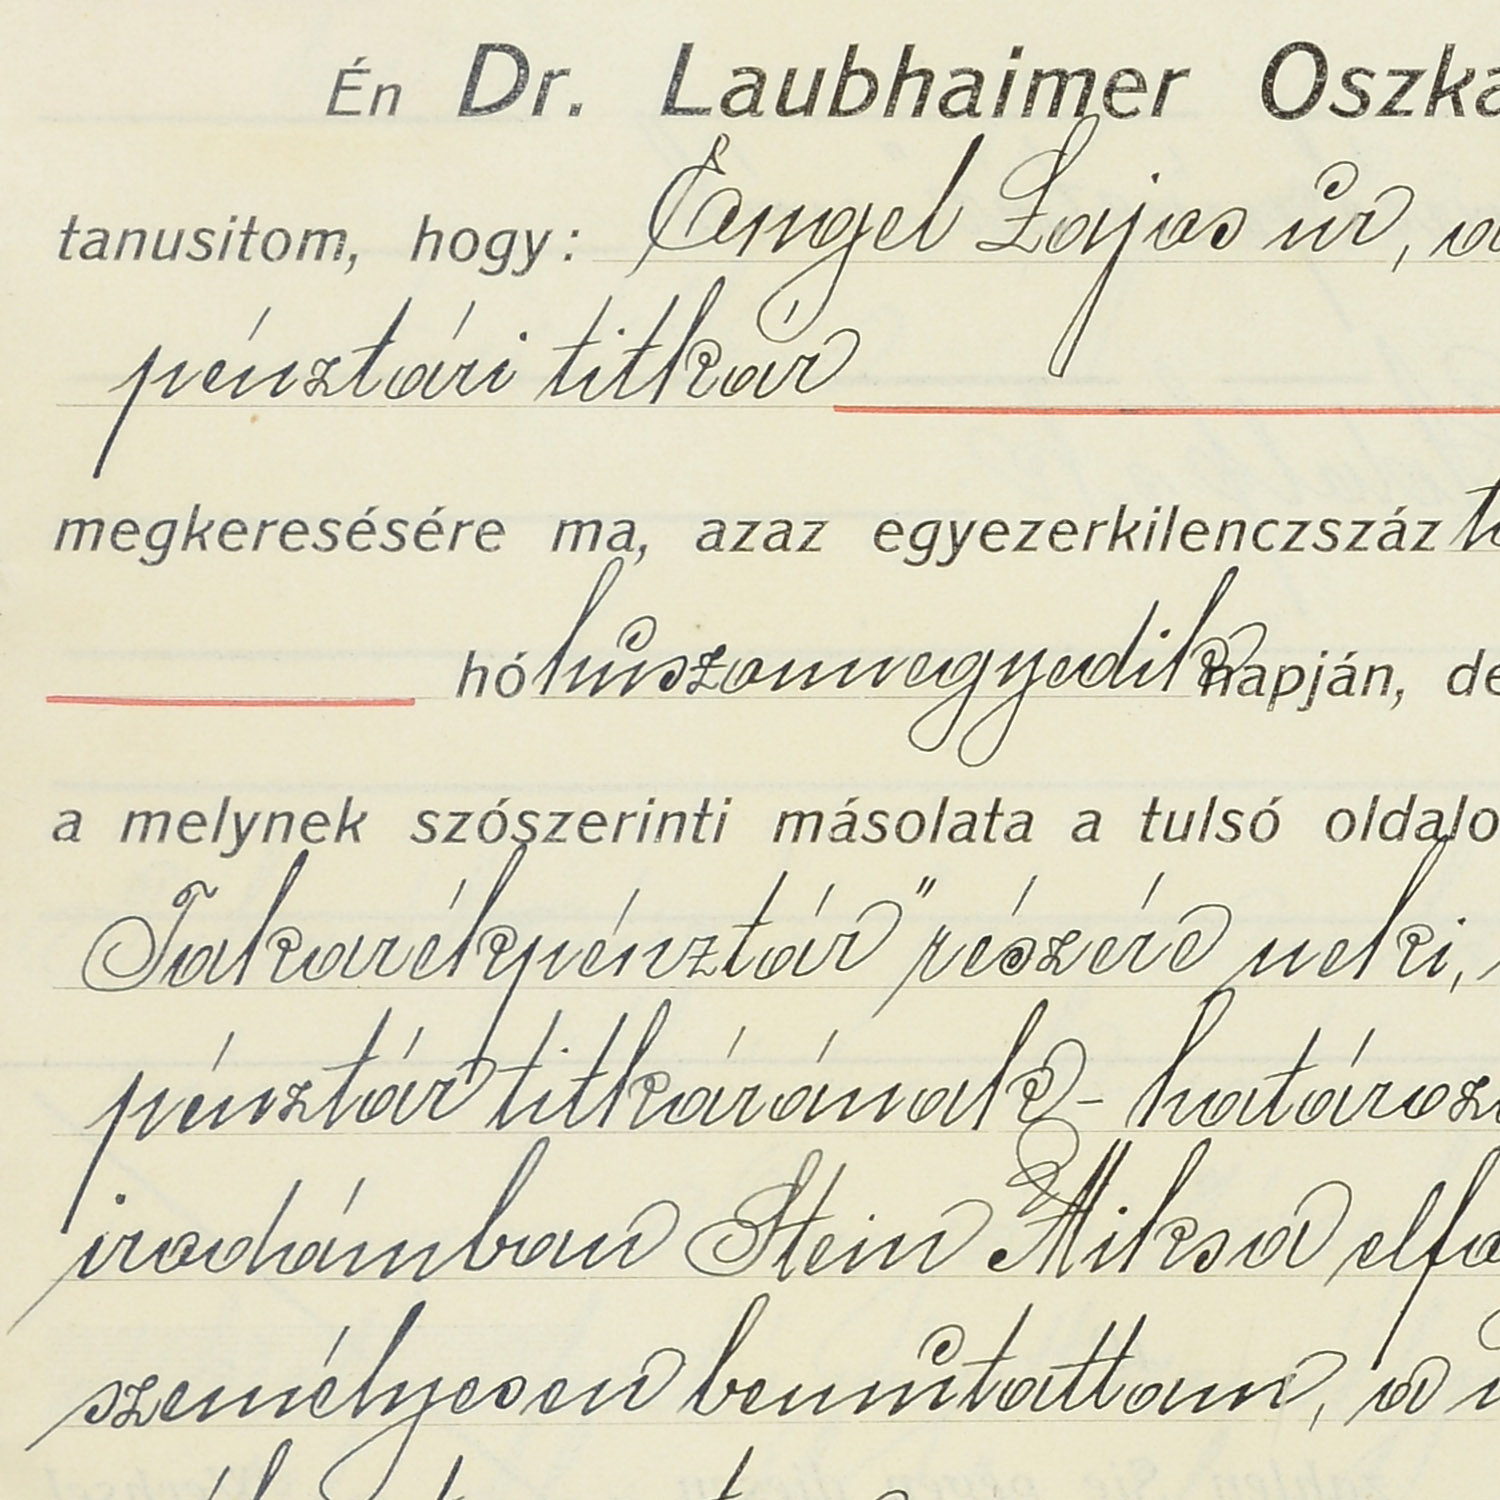 Én Dr. Laubhaimer Oszká
tanusitom, hogy: Engel Lajos úr, a
pénztári titkár
megkeresésére ma, azaz egyezerkilenczszáz
hó huszonnegyedik napján, de
a melynek szószerinti másolata a tulsó oldalo
Takarékpénztár" részére neki,
pénztár titkárának - határoz
irodámban Stein Miksa elfo
személyesen bemutattam, a